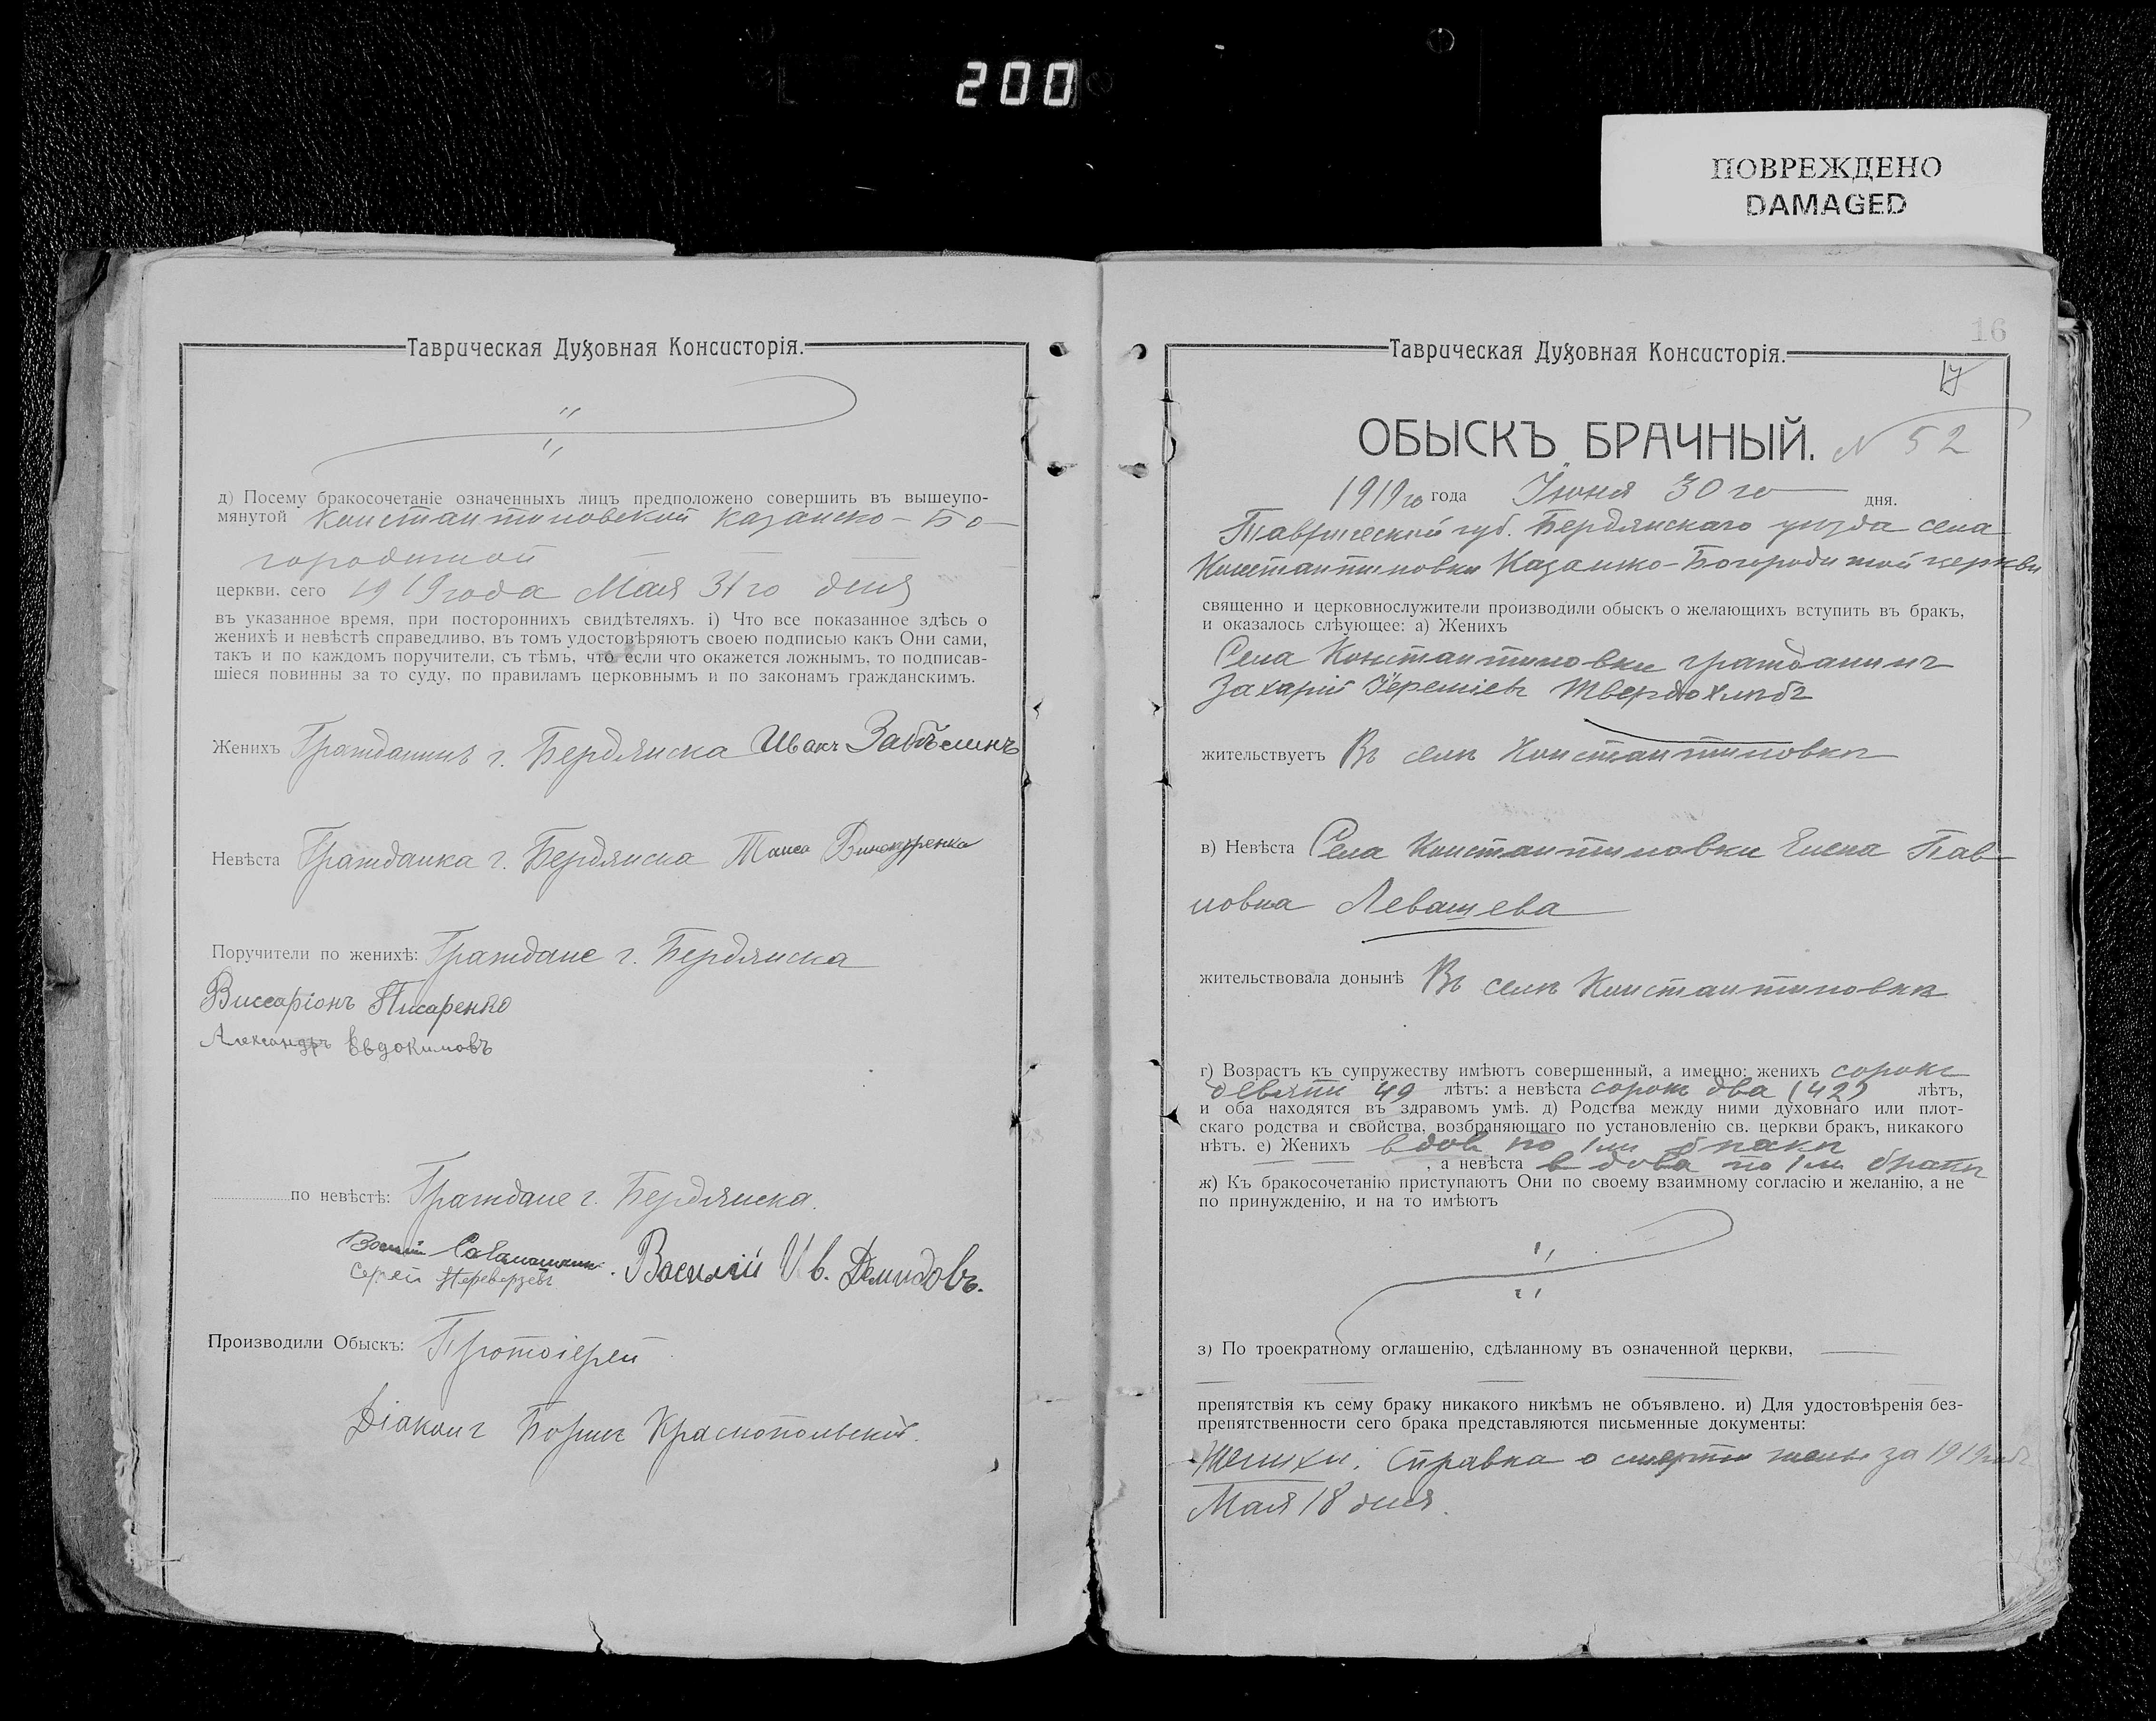 200
ПОВРЕЖДЕНО
DAMAGED
Таврическая Духовная Консисторія.
д) Посему бракосочетаніе означенныхъ лицъ предположено совершить въ вышеупо-
мянутой Константиновской Казанско-Бо-
городичной
церкви, сего 1919 года Мая 31го дня
въ указанное время, при постороннихъ свидѣтеляхъ. і) Что все показанное здѣсь о
женихѣ и невѣстѣ справедливо, въ томъ удостовѣряютъ своею подписью какъ Они сами,
такъ и по каждомъ поручители, съ тѣмъ, что если что окажется ложнымъ, то подписав-
шіеся повинны за то суду, по правиламъ церковнымъ и по законамъ гражданскимъ.
Женихъ Гражданинъ г. Бердянска Иванъ Забѣлинъ
Невѣста Гражданка г. Бердянска Таиса Винокуренко
Поручители по женихѣ: Граждане г. Бердянска
Виссаріонъ Писаренко
Александръ Евдокимовъ
по невѣстѣ: Граждане г. Бердянска.
Василій Ив. Демидовъ.
Сергей Переверзевъ
Производили Обыскъ: Протоіерей
Діаконъ Борисъ Краснопольскій.
16
Таврическая Духовная Консисторія.
17
ОБЫСКЪ БРАЧНЫЙ. N 52
1919го года Іюня 30го дня.
Таврической губ. Бердянскаго уѣзда села
Константиновки Казанско-Богородичной церкви
священно и церковнослужители производили обыскъ о желающихъ вступить въ бракъ,
и оказалось слѣующее: а) Женихъ
Села Константиновки гражданинъ
Захарій Іереміевъ Твердохлѣбъ
жительствуетъ Въ селѣ Константиновкѣ
в) Невѣста Села Константиновки Елена Пав-
ловна Левашева
жительствовала донынѣ Въ селѣ Константиновкѣ
г) Возрастъ къ супружеству имѣютъ совершенный, а именно: женихъ сорокъ
девять 49 лѣтъ: а невѣста сорокъ два (42) лѣтъ,
и оба находятся въ здравомъ умѣ. д) Родства между ними духовнаго или плот-
скаго родства и свойства, возбраняющаго по установленію св. церкви бракъ, никакого
нѣтъ. е) Женихъ вдовъ по 1мъ бракѣ
, а невѣста вдова по 1мъ бракѣ
ж) Къ бракосочетанію приступаютъ Они по своему взаимному согласію и желанію, а не
по принужденію, и на то имѣютъ
з) По троекратному оглашенію, сдѣланному въ означенной церкви,
препятствія къ сему браку никакого никѣмъ не объявлено. и) Для удостовѣренія без-
препятственности сего брака представляются письменные документы:
Женихъ: Справка о смерти жены за 1919 годъ
Мая 18 дня.